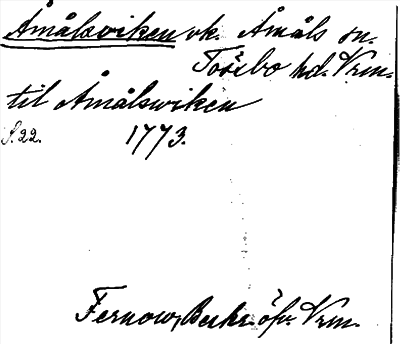 Åmålsviken vk. Åmåls sn.
Tössbo hd. Vrm.
til Åmålswiken
S. 22. 1773.
Fernow, Beskr. öfv. Vrm.